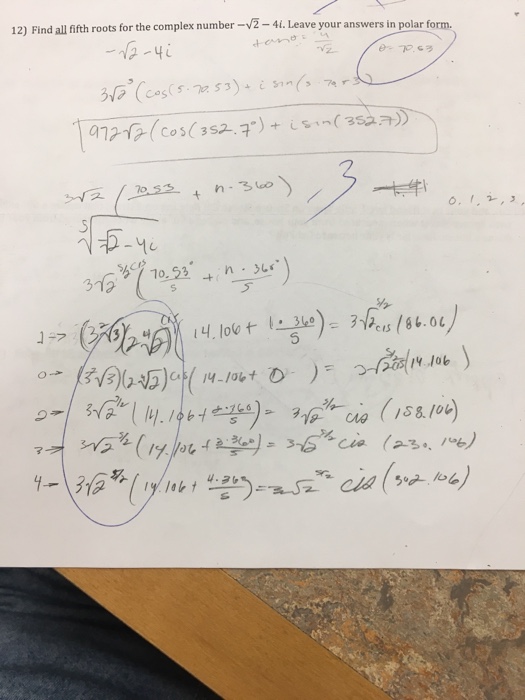 12) Find all fifth roots for the complex number −√2 − 4i. Leave your answers in polar form.
-√2 - 4i tan θ = 4/√2 θ = 70.53
3√2⁵ (cos(5·70.53) + i sin(5·70.53))
972√2 (cos(352.7°) + i sin(352.7))
3√2 (70.53 + n·360) , 3
0, 1, 2, 3,
⁵√-√2 - 4i
3√2^5/2 cis (70.53°/5 + n·360°/5)
1→ (3²√3)(2 ⁴√2) cis (14.106 + 1·360/5) = 3√2^5/2 cis (86.06)
0→ (3²√3)(2·⁴√2) cis (14.106 + 0) = 3√2^5/2 cis (14.106)
2→ 3√2^5/2 (14.106 + 2·360/5) = 3√2^5/2 cis (158.106)
3→ 3√2^5/2 (14.106 + 3·360/5) = 3√2^5/2 cis (230.106)
4→ 3√2^5/2 (14.106 + 4·360/5) = 3√2^5/2 cis (302.106)